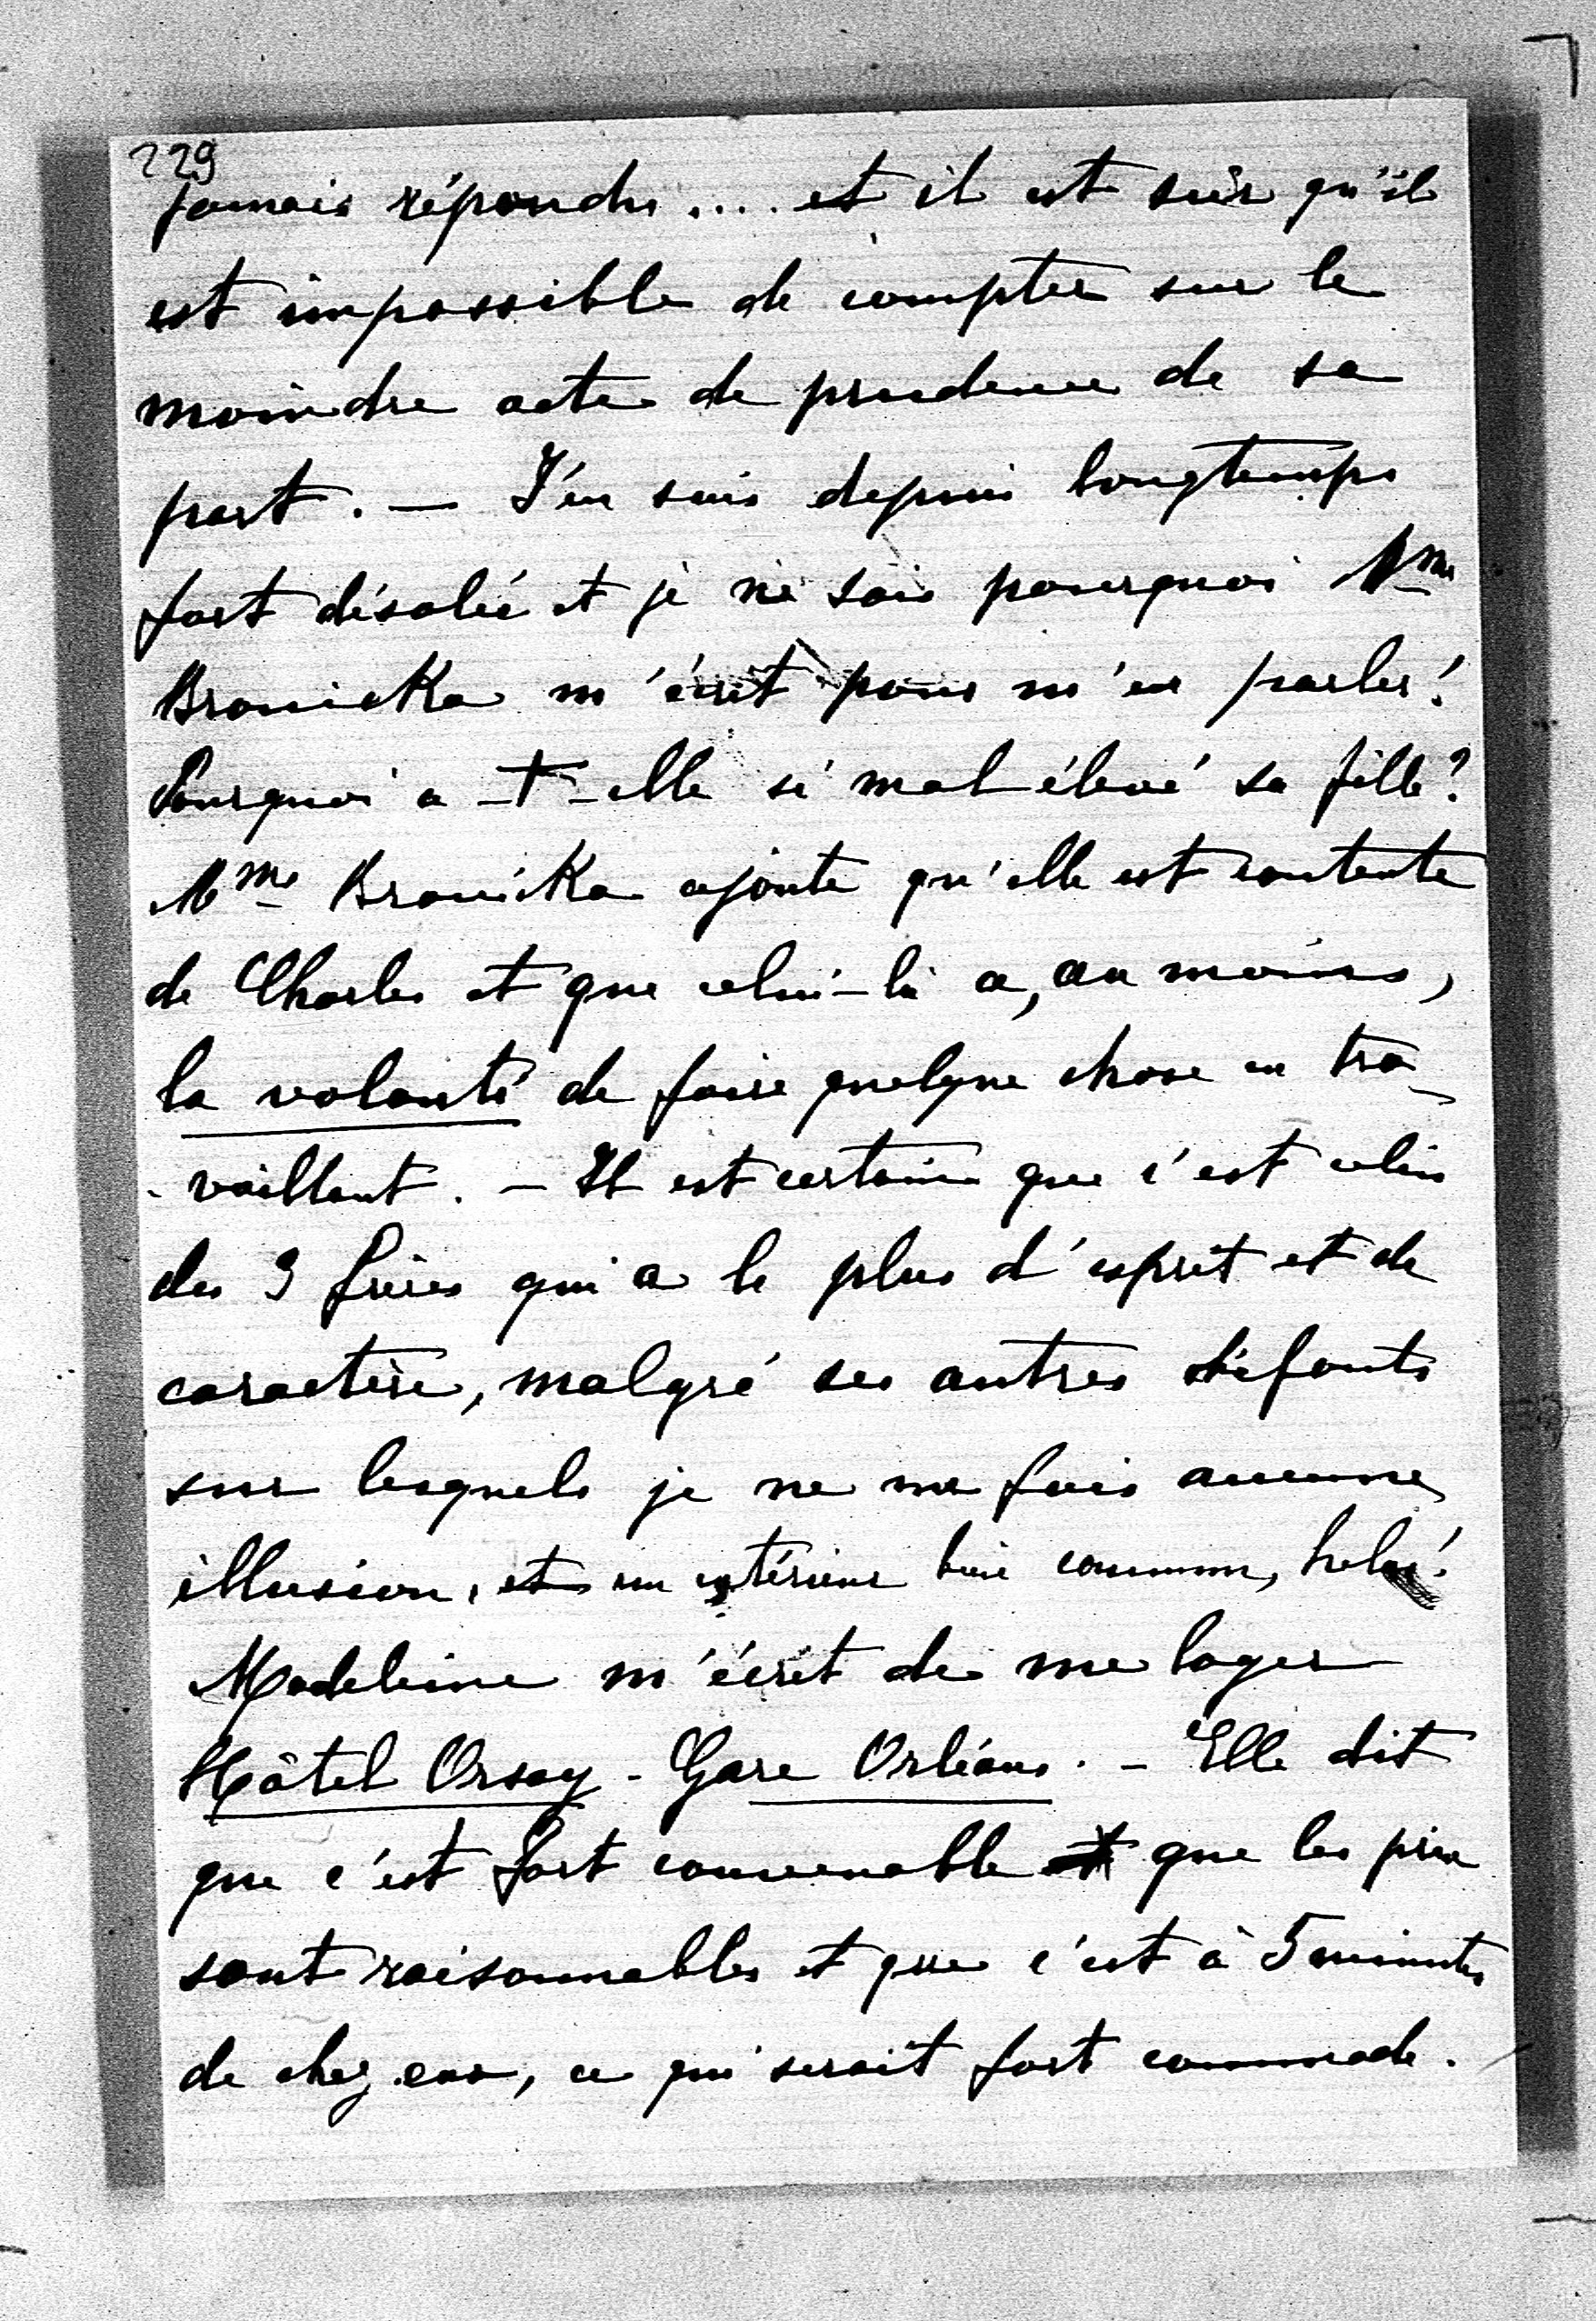 229
jamais répondu .... et il est sûr qu'il
est impossible de compter sur le
moindre acte de prudence de sa
part. — J'en suis depuis longtemps
fort désolée et je ne sais pourquoi Mme
Bronicka m'écrit pour m'en parler!
Pourquoi a-t-elle si mal élevé sa fille?
Mme Bronicka ajoute qu'elle est contente
de Charles et que celui-là a, au moins,
la volonté de faire quelque chose en tra-
-vaillant. — Il est certain que c'est celui
des 3 frères qui a le plus d'esprit et de
caractère, malgré ses autres défauts
sur lesquels je ne me fais aucune
illusion, et un extérieur bien commun, hélas!
Madeleine m'écrit de me loger
Hôtel Orsay - Gare Orléans. — Elle dit
que c'est fort convenable et que les prix
sont raisonnables et que c'est à 5 minutes
de chez eux, ce qui serait fort commode.